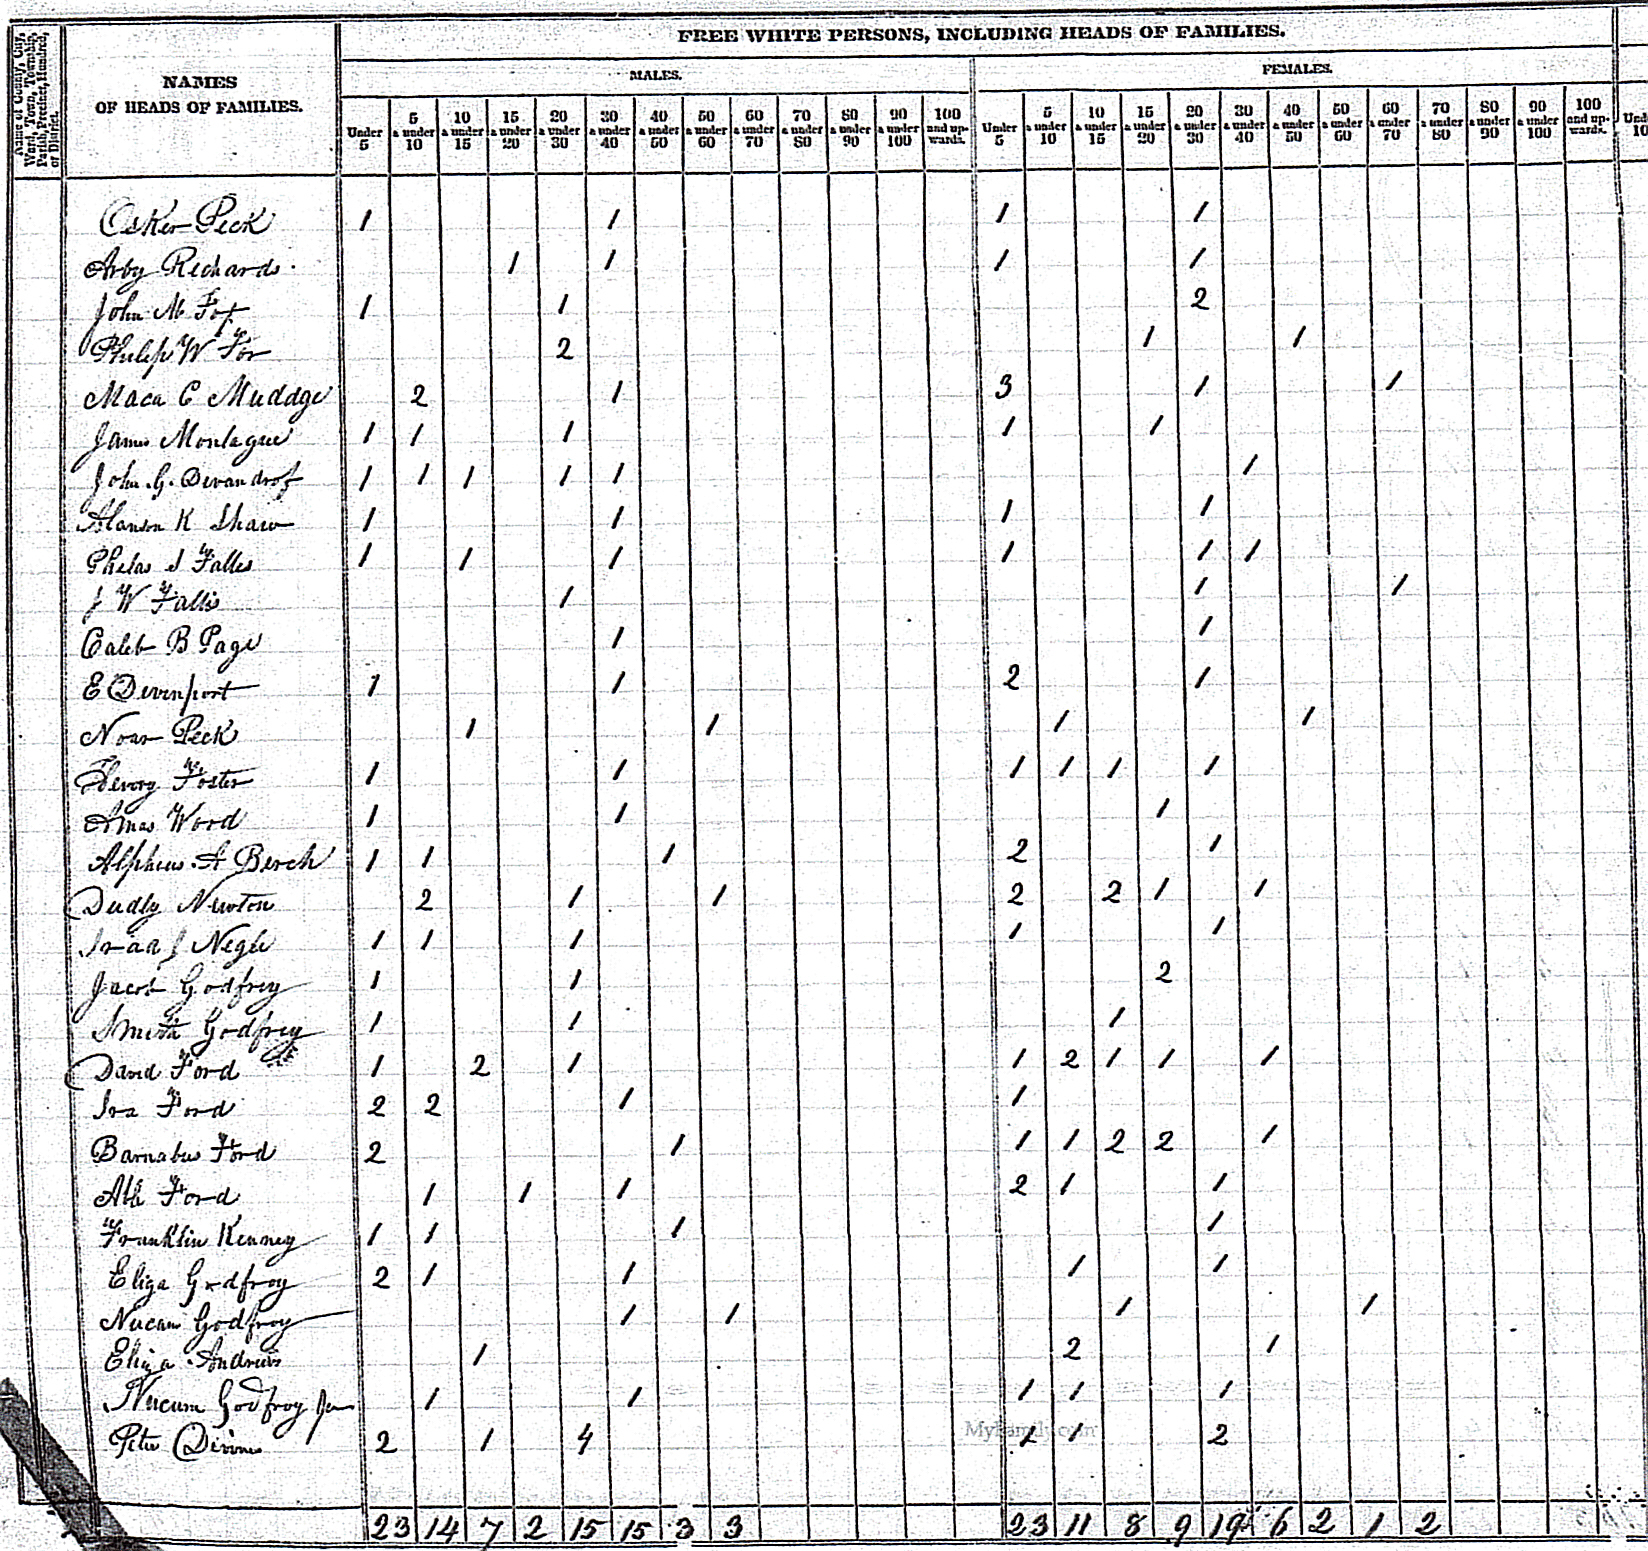 FREE WHITE PERSONS, INCLUDING HEADS OF FAMILIES.
Name of County, City, Ward, Town, Township, Parish, Precinct, Hundred, or District.
NAMES OF HEADS OF FAMILIES.
MALES. FEMALES.
Under 5 | 5 & under 10 | 10 & under 15 | 15 & under 20 | 20 & under 30 | 30 & under 40 | 40 & under 50 | 50 & under 60 | 60 & under 70 | 70 & under 80 | 80 & under 90 | 90 & under 100 | 100 and upwards. | Under 5 | 5 & under 10 | 10 & under 15 | 15 & under 20 | 20 & under 30 | 30 & under 40 | 40 & under 50 | 50 & under 60 | 60 & under 70 | 70 & under 80 | 80 & under 90 | 90 & under 100 | 100 and upwards. | Und 10
Osker Peck 1 1 1 1
Arby Richards 1 1 1 1
John M Fox 1 1 2
Philip W For 2 1 1
Maca C Muddge 2 1 3 1 1
James Montague 1 1 1 1 1
John G. Devandrof 1 1 1 1 1 1
Alanson K Shaw 1 1 1 1
Phelas J Falles 1 1 1 1 1 1
J W Fallis 1 1 1
Caleb B Page 1 1
E Devenport 1 1 2 1
Noar Peck 1 1 1 1
Henry Foster 1 1 1 1 1 1
Amas Word 1 1 1
Alpheus A Berch 1 1 1 2 1
Dudly Newton 2 1 1 2 2 1 1
Negle 1 1 1 1 1
Jacob Godfrey 1 1 2
Smith Godfrey 1 1 1
David Ford 1 2 1 1 2 1 1 1
Ira Ford 2 2 1 1
Barnabus Ford 2 1 1 1 2 2 1
Ford 1 1 1 2 1 1
Franklin Kenney 1 1 1 1
Eliza Godfroy 2 1 1 1 1
Nucam Godfroy 1 1 1 1
Eliza Andrews 1 2 1
Nucum Godfroy Jun 1 1 1 1 1
Peter Divine 2 1 4 1 1 2
MyFamily.com
23 14 7 2 15 15 3 3 23 11 8 9 19 6 2 1 2